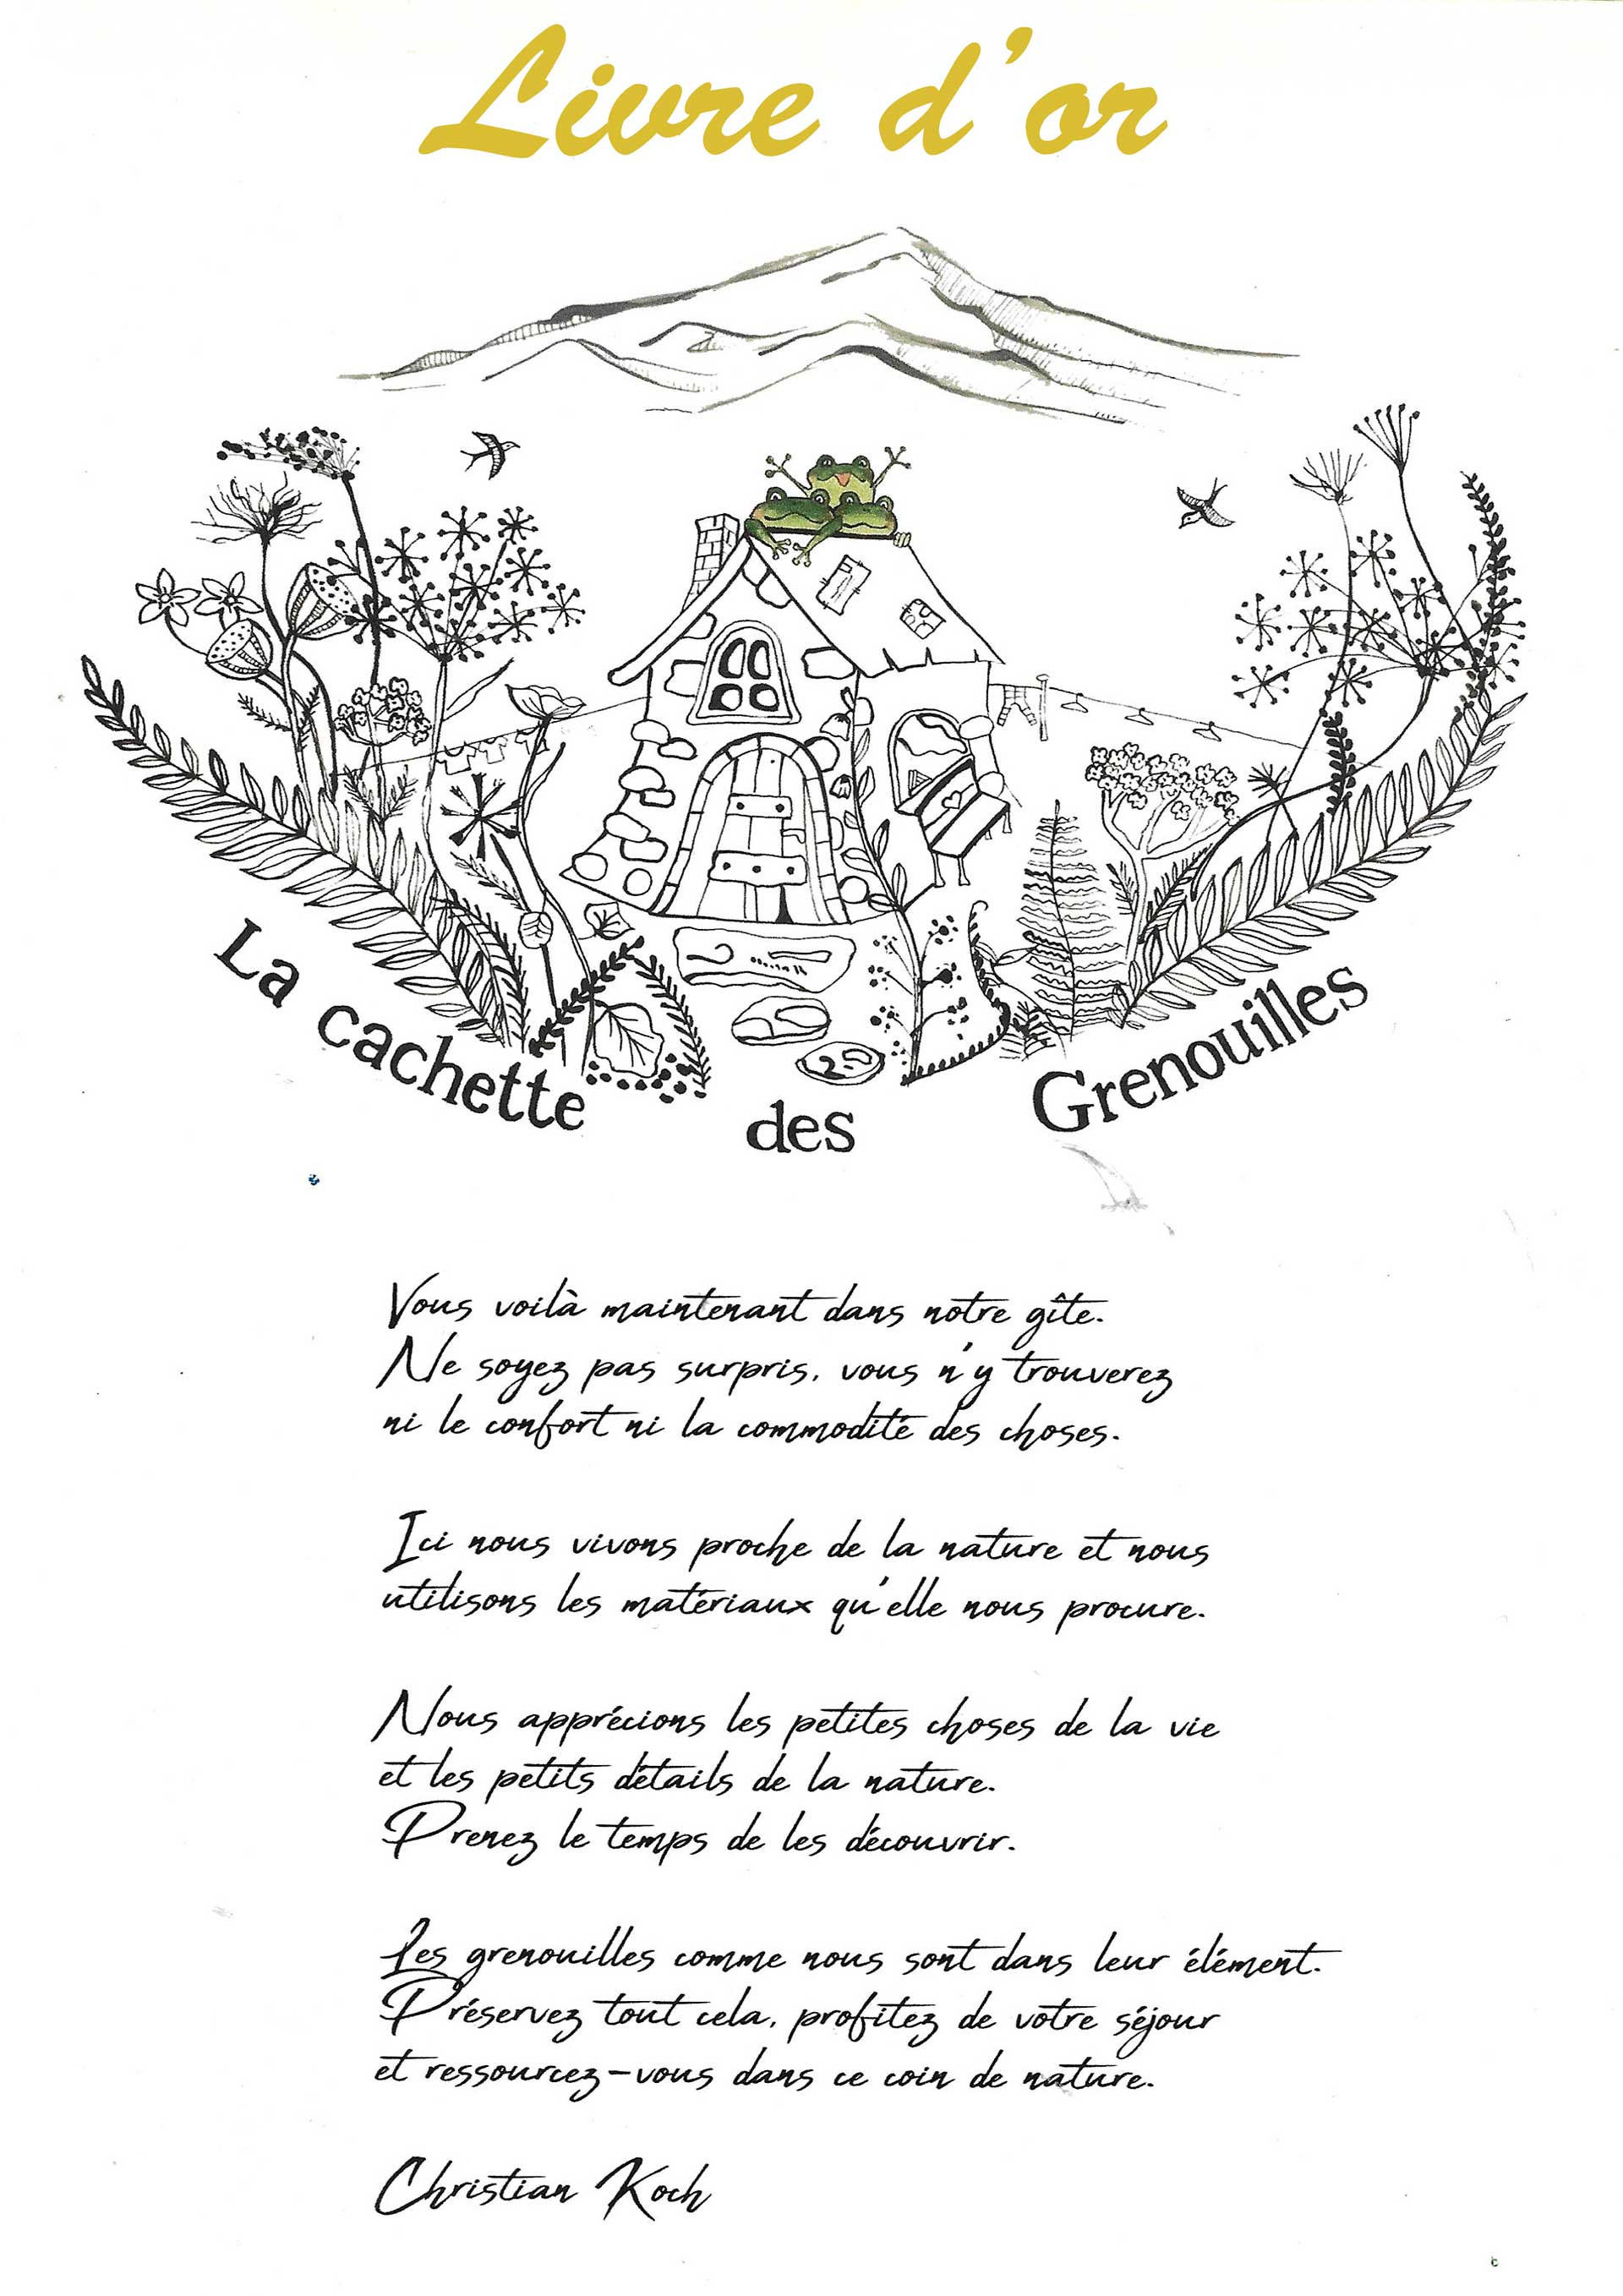 Livre d'or
La cachette des Grenouilles
Vous voilà maintenant dans notre gîte.
Ne soyez pas surpris, vous n'y trouverez
ni le confort ni la commodité des choses.
Ici nous vivons proche de la nature et nous
utilisons les matériaux qu'elle nous procure.
Nous apprécions les petites choses de la vie
et les petits détails de la nature.
Prenez le temps de les découvrir.
Les grenouilles comme nous sont dans leur élément.
Préservez tout cela, profitez de votre séjour
et ressourcez-vous dans ce coin de nature.
Christian Koch